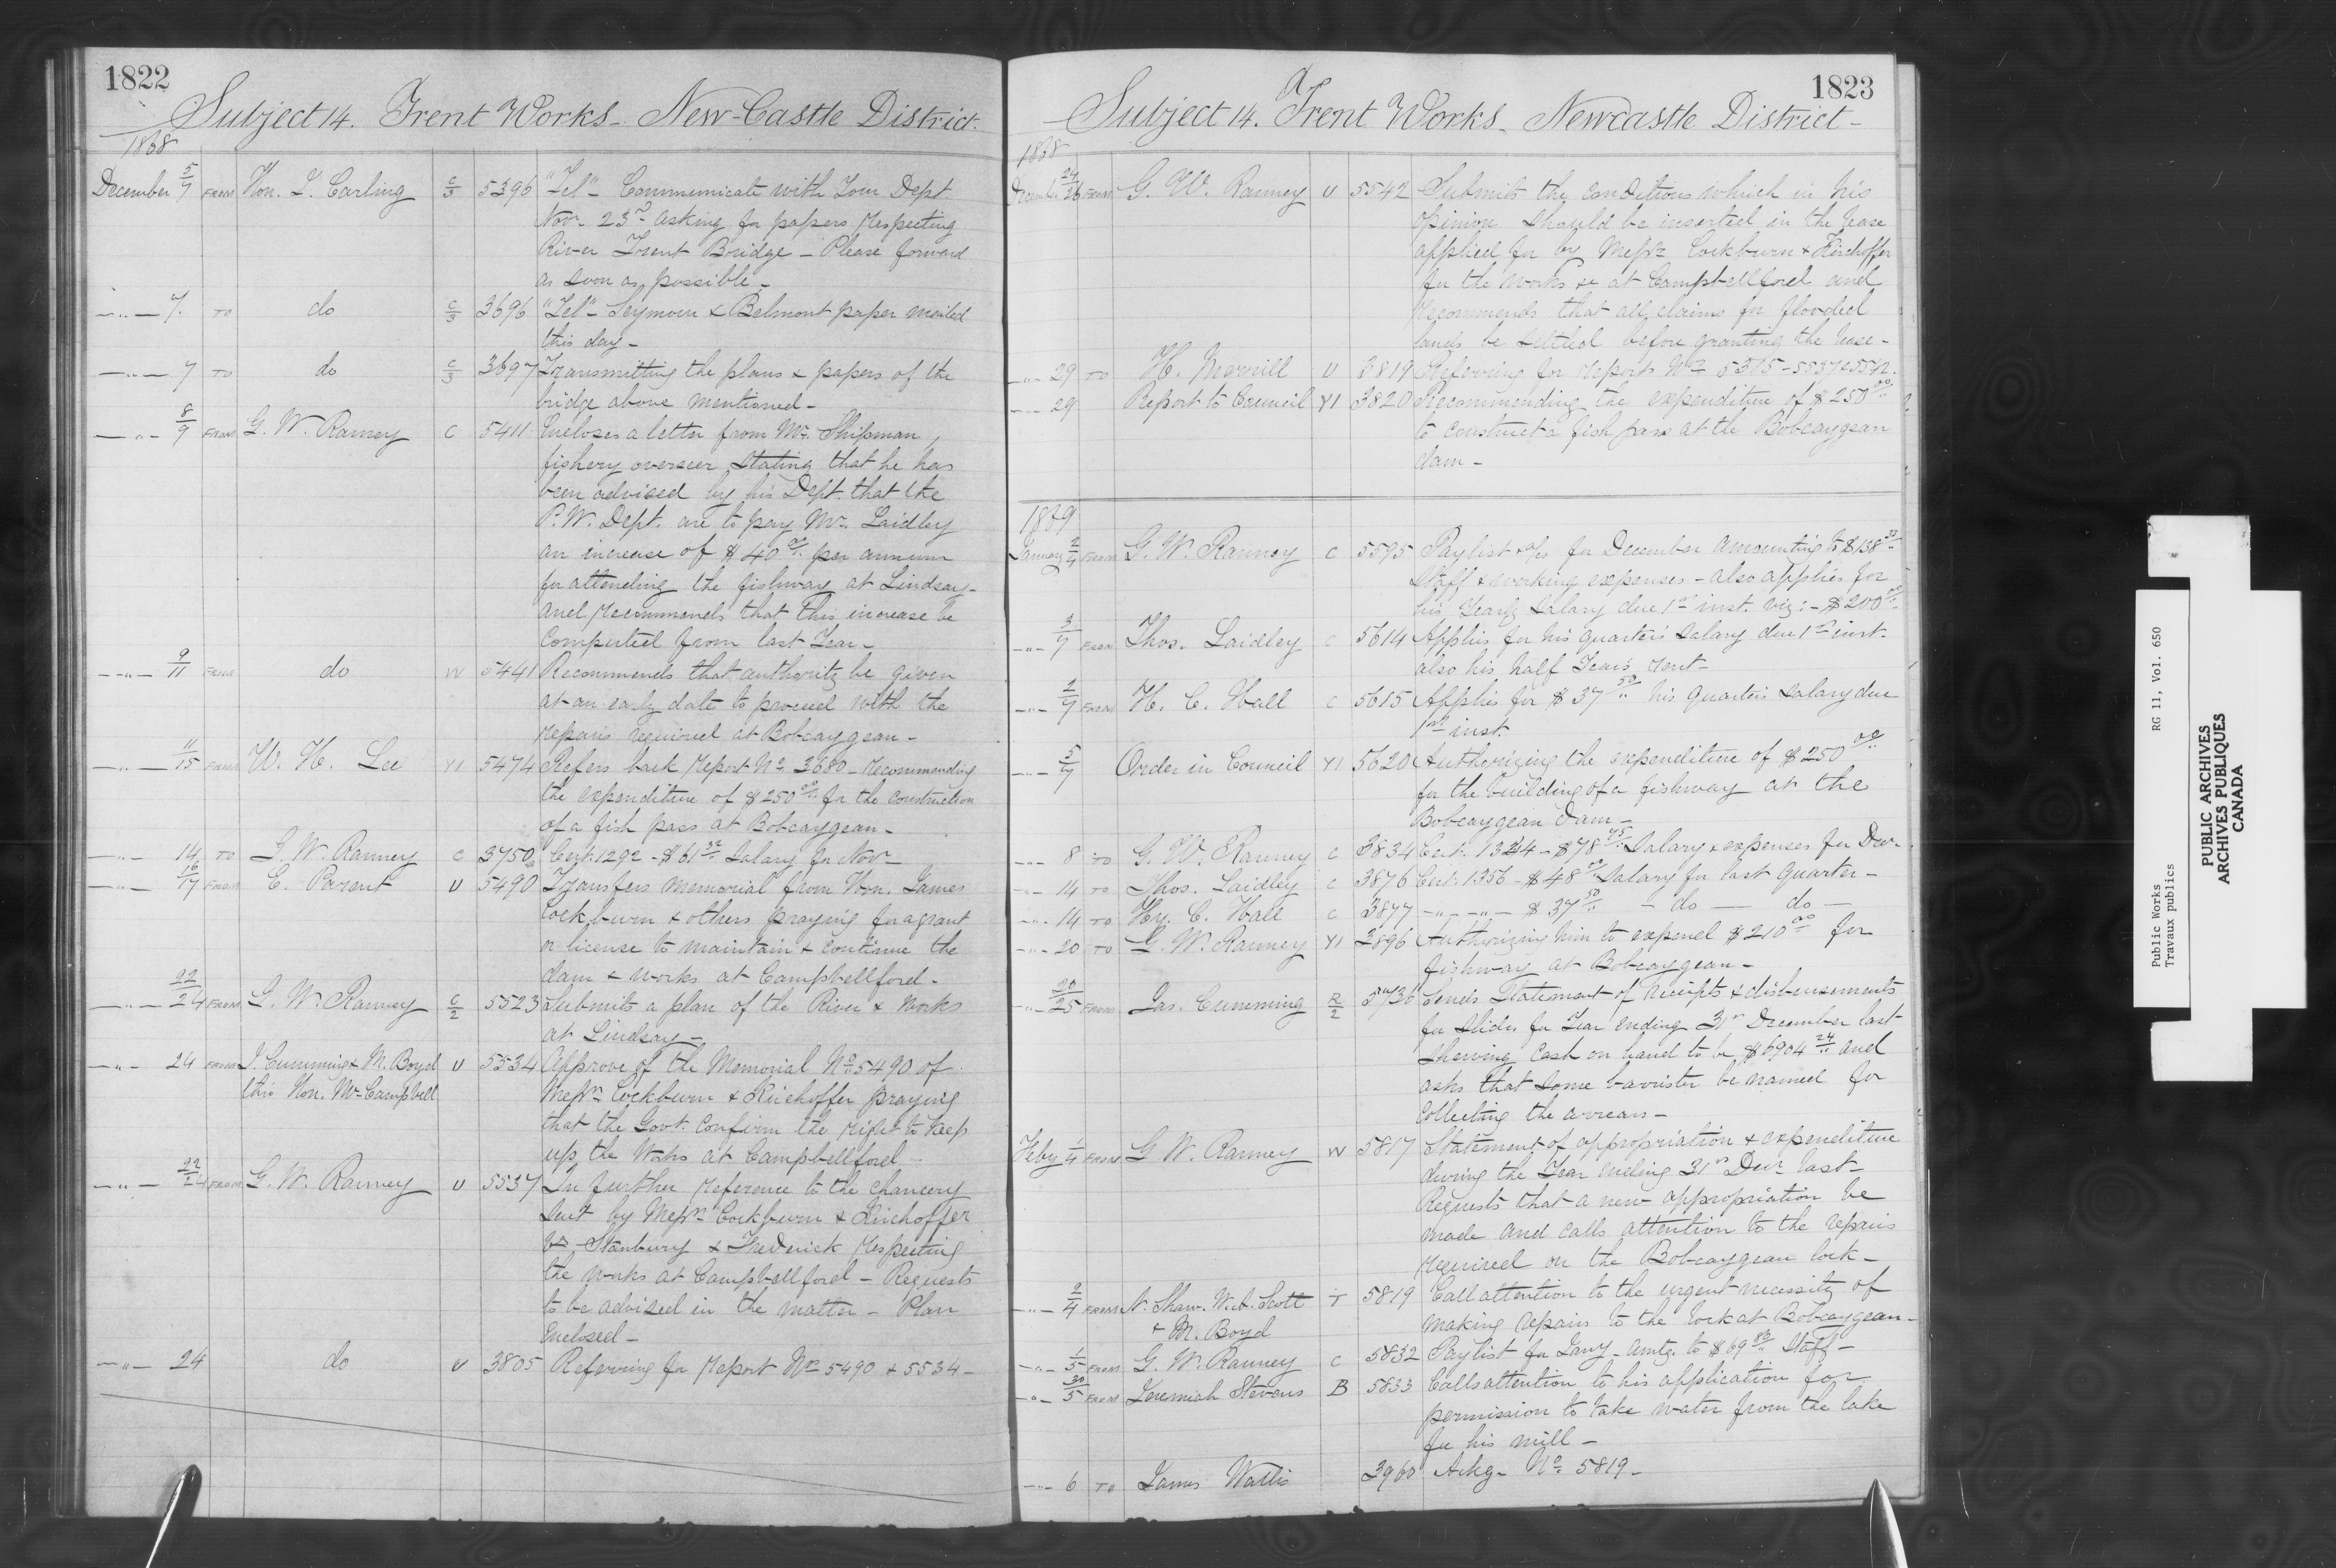 1822
Subject 14. Trent Works - New-Castle District.
1868
December 5/7 FROM Hon. J. Carling C/3 5396 "Tel" - Communicate with Your Dept
Novr. 23rd asking for papers respecting
River Trent Bridge - Please forward
as soon as possible -
-"- 7. TO do C/3 3696 "Tel" - Seymour & Belmont paper mailed
this day -
-"- 7 TO do C/3 3697 Transmitting the plans & papers of the
bridge above mentioned -
-"- 8/9 FROM G. W. Ranney C 5411 Encloses a letter from Mr. Shipman,
fishery overseer stating that he has
been advised by his Dept. that the
P.W. Dept. are to pay Mr. Laidley
an increase of $40.00 per annum
for attending the fishway at Lindsay -
and recommends that this increase be
computed from last Year -
-"- 9/11 FROM do W 5441 Recommends that authority be given
at an early date to proceed with the
repairs required at Bobcaygean -
-"- 11/15 FROM W. H. Lee Y1 5474 Refers back report No. 3680 - recommending
the expenditure of $250.00 for the construction
of a fish pass at Bobcaygean -
-"- 14 TO G. W. Ranney C 3750 Cert. 1292 - $61.32 Salary for Novr
-"- 16/17 FROM E. Parent U 5490 Transfers memorial from Hon. James
Cockburn & others praying for a grant
or license to maintain & continue the
dam & works at Campbellford -
-"- 22/24 FROM G. W. Ranney C/2 5523 Submits a plan of the River & works
at Lindsay -
-"- 24 FROM J. Cumming & M. Boyd U 5534 Approve of the Memorial No. 5490 of
thro' Hon. Mr. Campbell Messrs. Cockburn & Kirchoffer praying
that the Govt. confirm the right to keep
up the Works at Campbellford -
-"- 22/24 FROM G. W. Ranney U 5537 In further reference to the chancery
suit by Messrs. Cockburn & Kirchoffer
vs. Stanbury & Frederick respecting
the works at Campbellford - Requests
to be advised in the matter - Plan
Enclosed -
-"- 24 do U 3805 Referring for report Nos. 5490 & 5534 -
1823
Subject 14. Trent Works - Newcastle District -
1868
December 24/26 FROM G. W. Ranney U 5542 Submits the conditions which in his
opinion should be inserted in the lease
applied for by Messrs. Cockburn & Kirchoffer
for the works &c at Campbellford and
recommends that all claims for flooded
lands be settled before granting the lease -
-"- 29 TO H. Merrill U 3819 Referring for report Nos. 5515 - 5537 & 5542.
-"- 29 Report to Council Y1 3820 Recommending the expenditure of $250.00
to construct a fish pass at the Bobcaygean
dam -
1869
January 2/4 FROM G. W. Ranney C 5595 Paylist & a/cs for December amounting to
Staff & working expenses - also applies for
his Yearly salary due 1st inst. viz: - $200.00
-"- 3/7 FROM Thos. Laidley C 5614 Applies for his quarters salary due 1st inst.
also his half Year's rent -
-"- 2/7 FROM H. C. Hall C 5615 Applies for $37.50 his quarters salary due
1st inst.
-"- 5/7 Order in Council Y1 5620 Authorizing the expenditure of $250.00
for the building of a fishway at the
Bobcaygean dam -
-"- 8 TO G. W. Ranney C 3834 Cert. - $78.75 Salary & expenses for Decr.
-"- 14 TO Thos. Laidley C 3876 Cert. 1356 - $48.00 Salary for last Quarter -
-"- 14 TO Hy. C. Hall C 3877 -"- -"- $37.50 - do - do -
-"- 20 TO G. W. Ranney Y1 3896 Authorizing him to expend $210.00 for
fishway at Bobcaygean -
-"- 20/25 FROM Jas. Cumming R/2 5736 Sends Statement of receipts & disbursements
for slides for Year ending 31st December last
shewing Cash on hand to be $6904.24 and
asks that some barrister be named for
collecting the arrears -
Feby 1/4 FROM G. W. Ranney W 5817 Statement of appropriation & expenditure
during the Year ending 31st Decr. last -
Requests that a new appropriation be
made and calls attention to the repairs
required on the Bobcaygean lock -
-"- 2/4 FROM N. Shaw. W. A. Scott T 5819 Call attention to the urgent necessity of
& M. Boyd making repairs to the lock at Bobcaygean -
-"- 1/5 FROM G. W. Ranney C 5832 Paylist for Jany. amtg. to $69.83 Staff -
-"- 30/5 FROM Jeremiah Stevens B 5833 Calls attention to his application for
permission to take water from the lake
for his mill -
-"- 6 TO James Wallis 3960 Ackg. No. 5819 -
Public Works RG 11, Vol. 650
Travaux publics
PUBLIC ARCHIVES
ARCHIVES PUBLIQUES
CANADA